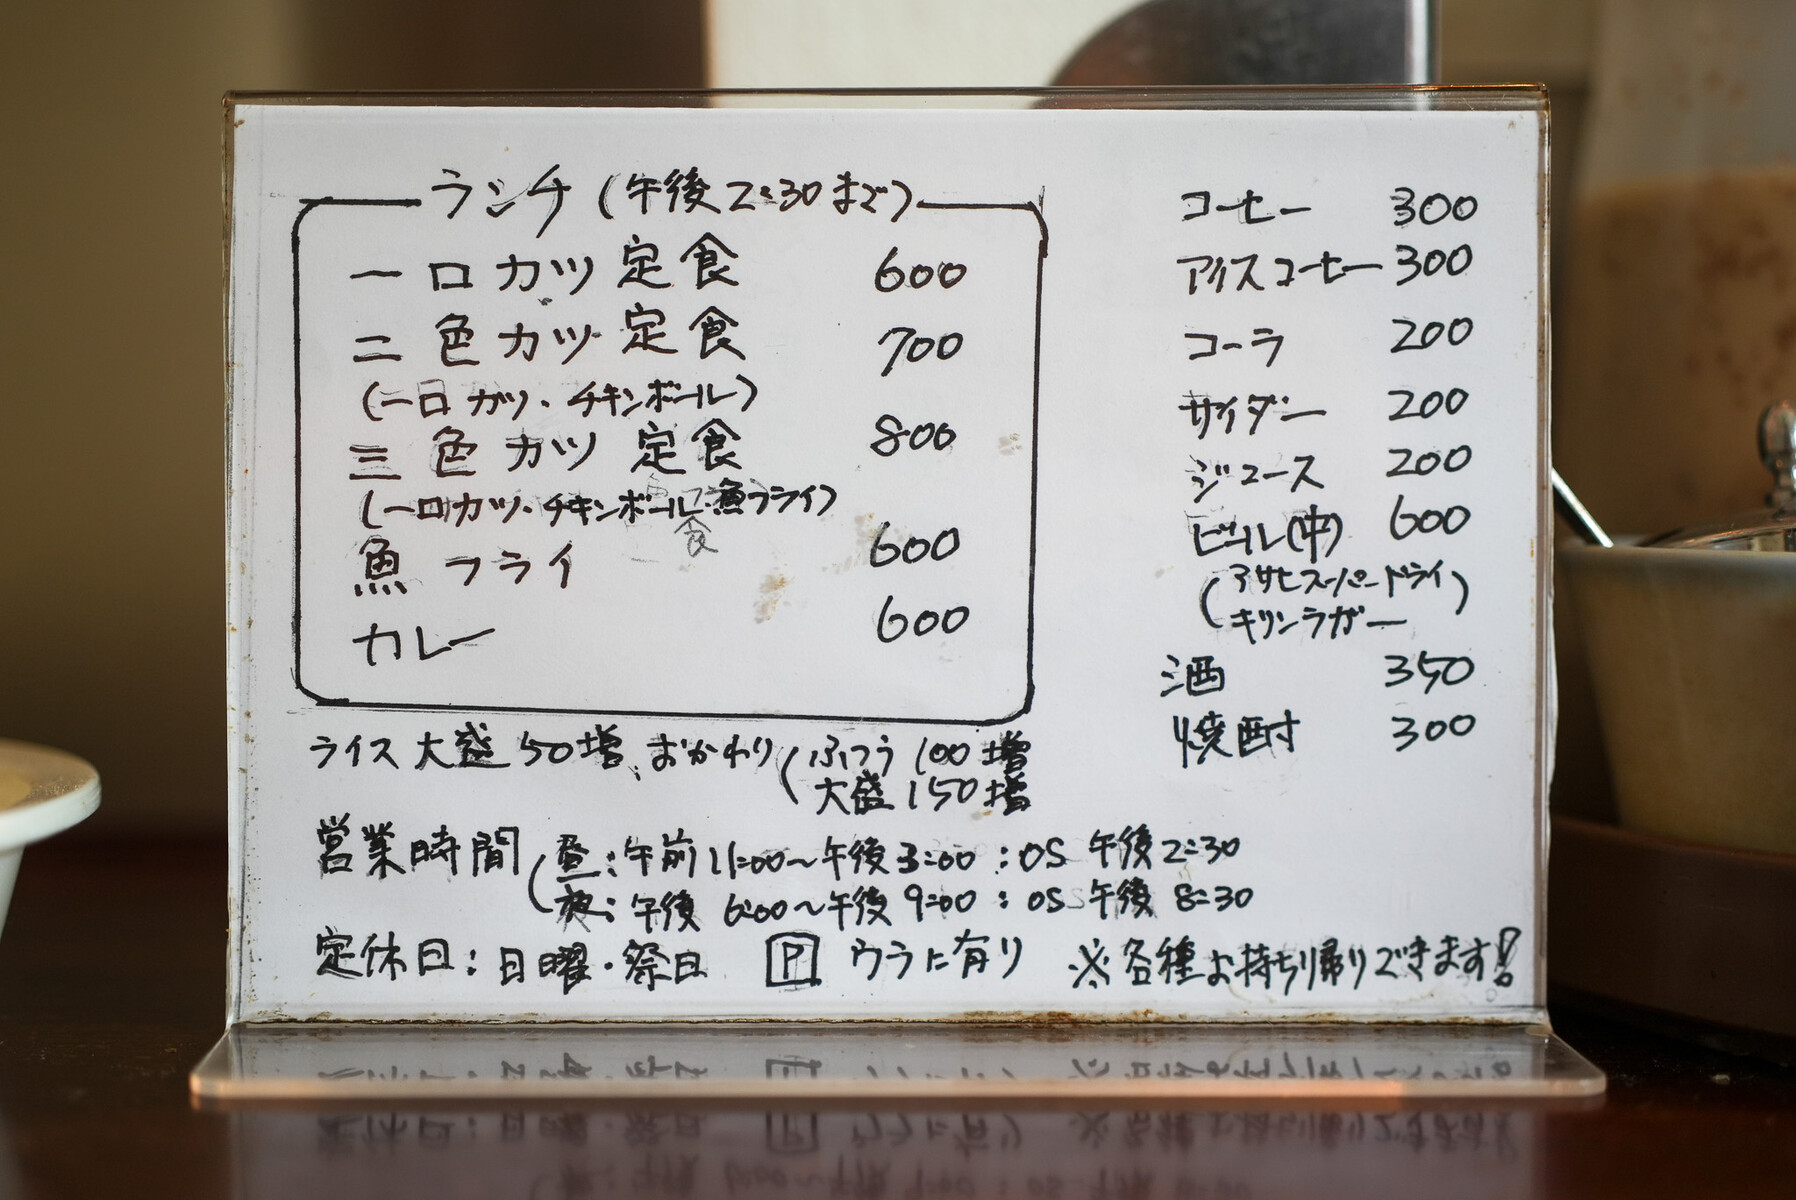 ランチ(午後2:30まで)
一口カツ定食 600
二色カツ定食 700
(一口カツ・チキンボール)
三色カツ定食 800
(一口カツ・チキンボール・魚フライ)
魚フライ 600
カレー 600
コーヒー 300
アイスコーヒー 300
コーラ 200
サイダー 200
ジュース 200
ビール(中) 600
(アサヒスーパードライ
キリンラガー)
酒 350
焼酎 300
ライス大盛50増、おかわり(ふつう100増
大盛150増
営業時間(昼:午前11:00~午後3:00:OS 午後2:30
夜:午後6:00~午後9:00:OS 午後8:30
定休日:日曜・祭日 P ウラに有り ※各種お持ち帰りできます!